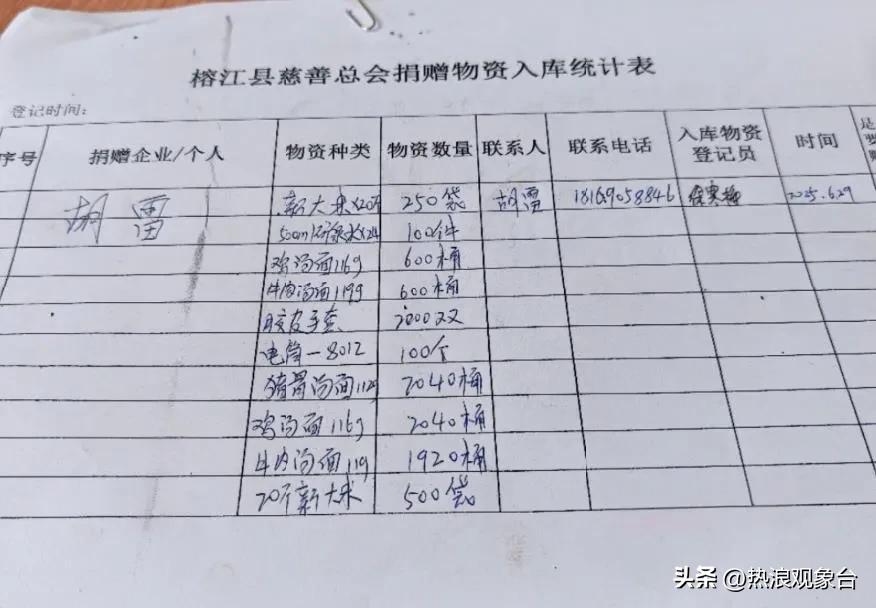 榕江县慈善总会捐赠物资入库统计表
登记时间:
序号 捐赠企业/个人 物资种类 物资数量 联系人 联系电话 入库物资登记员 时间 是
胡雷 新大米×20斤 250袋 胡雷 18169058846 2025.6.29
500ml 水×24 100件
鸡汤面116g 600桶
牛肉汤面119g 600桶
胶皮手套 2000双
电筒-8012 100个
猪骨汤面112g 2040桶
鸡汤面116g 2040桶
牛肉汤面119 1920桶
20斤新大米 500袋
头条 @热浪观象台